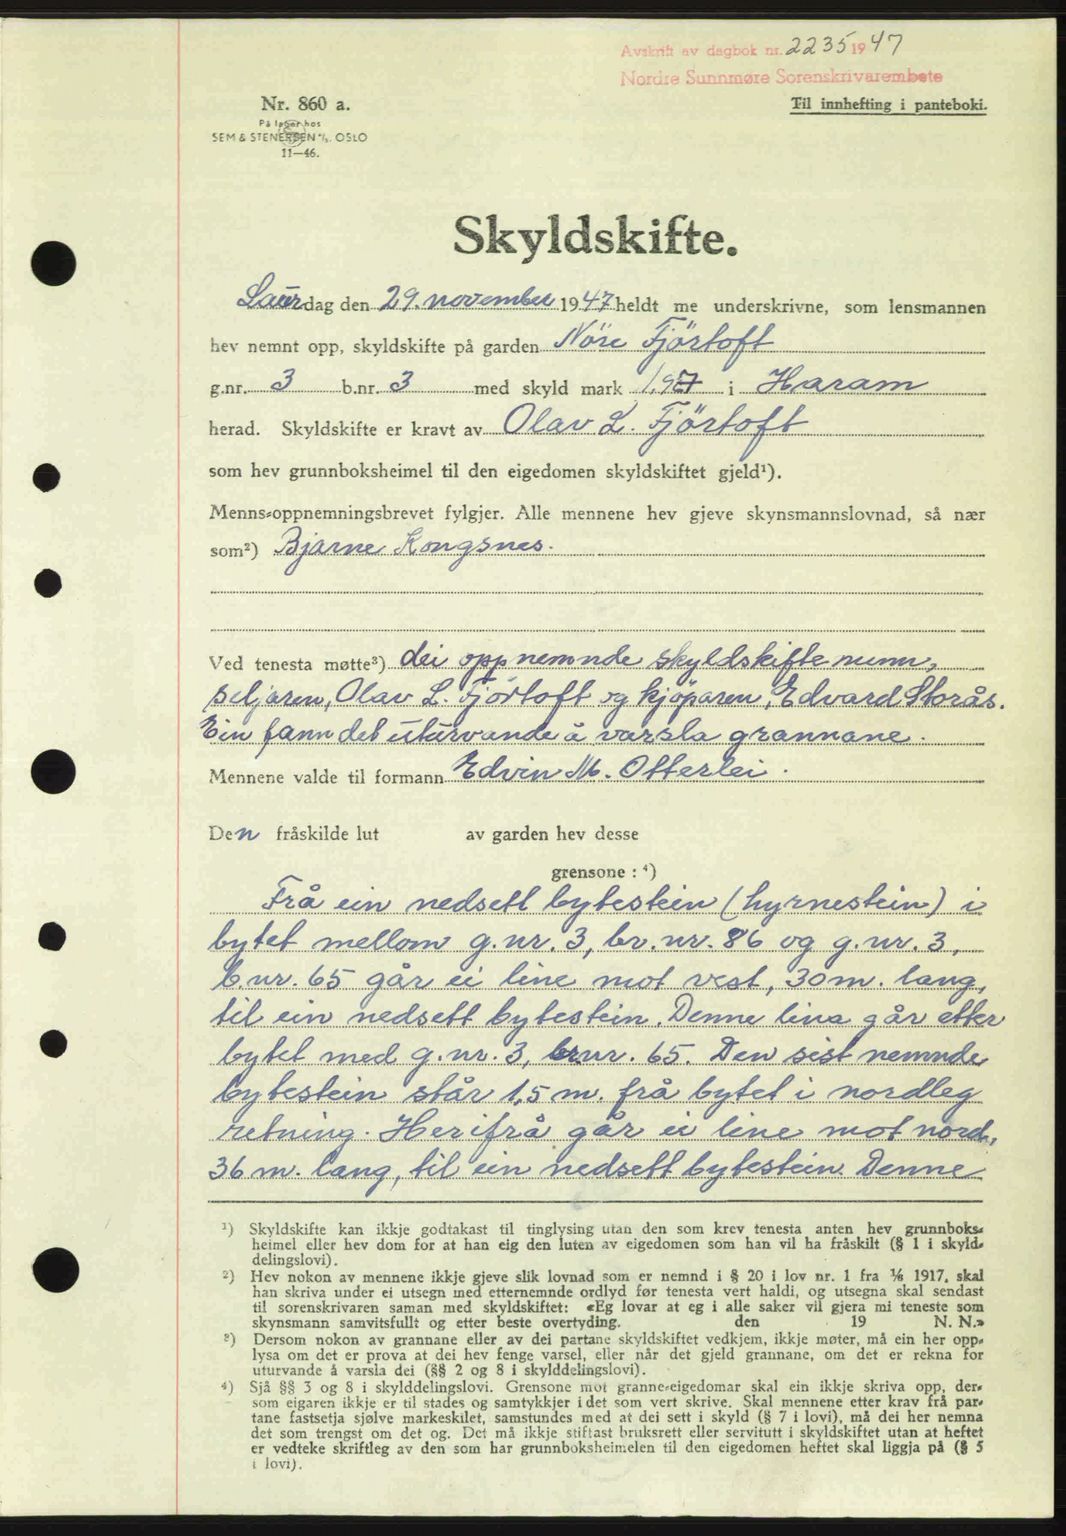 Avskrift av dagbok nr. 2235 1947
Nordre Sunnmøre Sorenskrivarembete
Nr. 860 a.
Til innhefting i panteboki.
På lager hos
SEM & STENERSEN A/S. OSLO
11—46.
Skyldskifte.
Laurdag den 29. november 1947 heldt me underskrivne, som lensmannen
hev nemnt opp, skyldskifte på garden Nöre Fjörtoft
g.nr. 3 b.nr. 3 med skyld mark 1,97 i Haram
herad. Skyldskifte er kravt av Olav L. Fjörtoft
som hev grunnboksheimel til den eigedomen skyldskiftet gjeld¹).
Menns-oppnemningsbrevet fylgjer. Alle mennene hev gjeve skynsmannslovnad, så nær
som²) Bjarne Kongsnes.
Ved tenesta møtte³) dei oppnemnde skyldskiftemenn,
seljaren, Olav L. Fjörtoft og kjöparen, Edvard Storås.
Ein fann det uturvande å varsla grannane.
Mennene valde til formann Edvin M. Otterlei.
Den fråskilde lut av garden hev desse
grensone : ⁴)
Frå ein nedsett bytestein (hyrnestein) i
bytet mellom g.nr. 3, br.nr. 86 og g.nr. 3,
b.nr. 65 går ei line mot vest, 30 m. lang,
til ein nedsett bytestein. Denne lina går etter
bytet med g.nr. 3, br.nr. 65. Den sist nemnde
bytestein står 1,5 m. frå bytet i nordleg
retning. Herifrå går ei line mot nord,
36 m. lang, til ein nedsett bytestein. Denne
¹) Skyldskifte kan ikkje godtakast til tinglysing utan den som krev tenesta anten hev grunnboks-
heimel eller hev dom for at han eig den luten av eigedomen som han vil ha fråskilt (§ 1 i skyld-
delingslovi).
²) Hev nokon av mennene ikkje gjeve slik lovnad som er nemnd i § 20 i lov nr. 1 fra ⅙ 1917, skal
han skriva under ei utsegn med etternemnde ordlyd før tenesta vert haldi, og utsegna skal sendast
til sorenskrivaren saman med skyldskiftet: «Eg lovar at eg i alle saker vil gjera mi teneste som
skynsmann samvitsfullt og etter beste overtyding. den 19 N. N.»
³) Dersom nokon av grannane eller av dei partane skyldskiftet vedkjem, ikkje møter, må ein her opp-
lysa om det er prova at dei hev fenge varsel, eller når det gjeld grannane, om det er rekna for
uturvande å varsla dei (§§ 2 og 8 i skylddelingslovi).
⁴) Sjå §§ 3 og 8 i skylddelingslovi. Grensone mot granne-eigedomar skal ein ikkje skriva opp, der-
som eigaren ikkje er til stades og samtykkjer i det som vert skrive. Skal mennene etter krav frå par-
tane fastsetja sjølve markeskilet, samstundes med at dei sett i skyld (§ 7 i lovi), må dei her nemna
det som trengst om det og. Det må ikkje stiftast bruksrett eller servitutt i skyldskiftet utan at heftet
er vedteke skriftleg av den som har grunnboksheimelen til den eigedomen heftet skal liggja på (§ 5
i lovi).